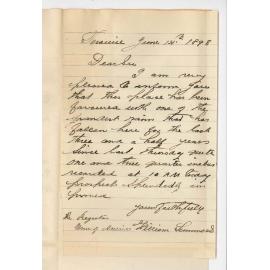 June 14th 1898
Dear Sir
I am very
pleased to inform you
that this place has been
favoured with one of the
grandest rains that has
fallen here for the last
three and a half years
since last Thursday night
one and three quarter inches
recorded at 10 AM today
prospect splendid in
general
yours faithfully
William